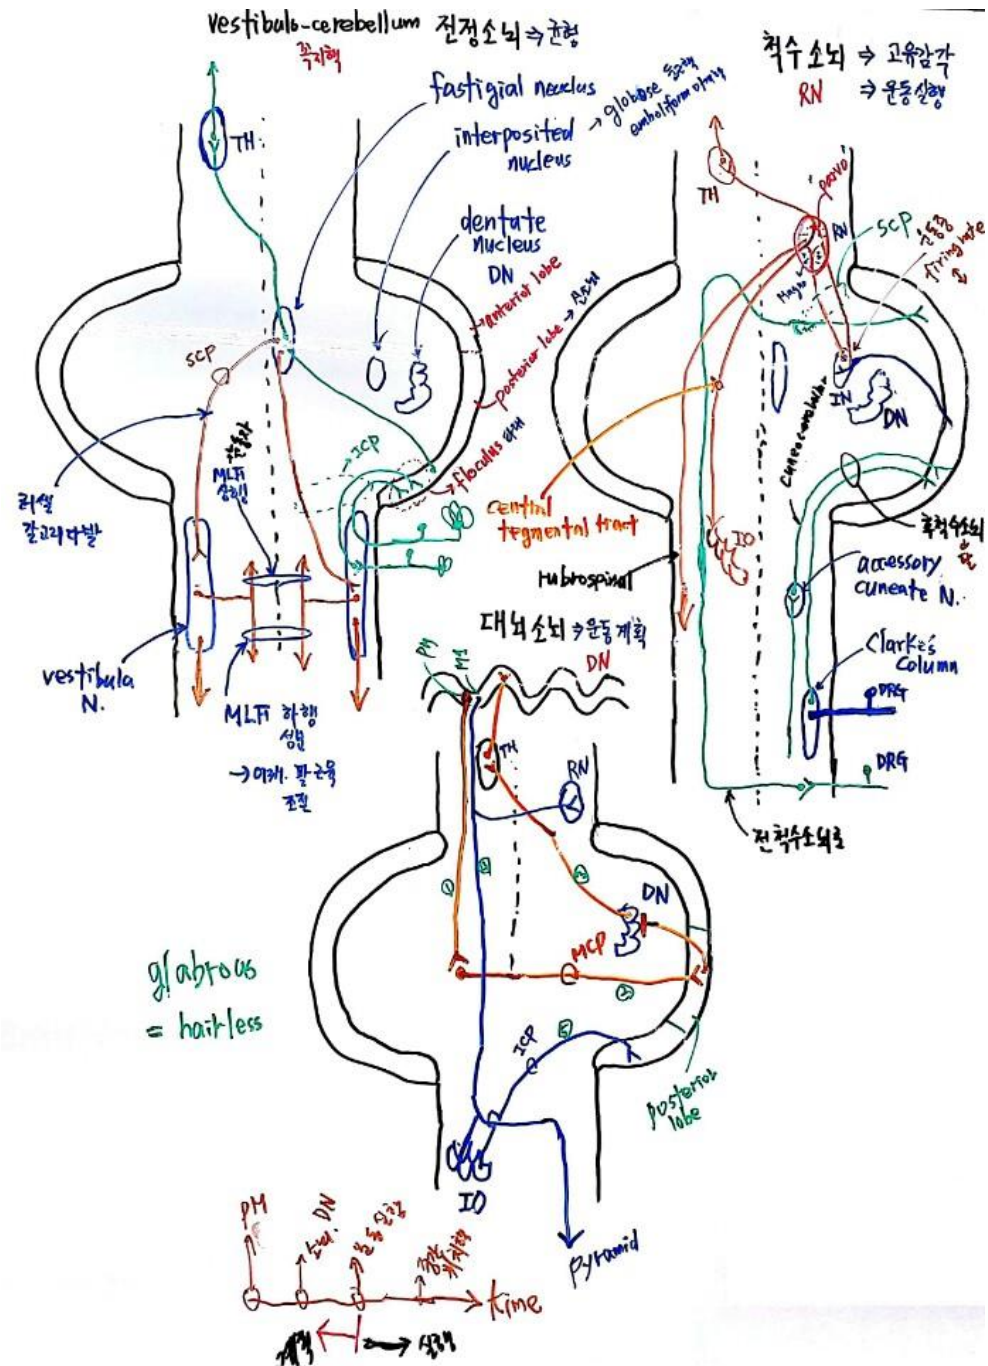 vestibulo-cerebellum 전정소뇌 ⇒ 균형
꼭지핵
fastigial neucleus
interposited nucleus
→ globose 둥근핵
emboliform 마개핵
TH
dentate
nucleus
DN
anterior lobe
posterior lobe
floculus 타래
SCP
ICP
러셀
갈고리다발
MLF
상행
vestibula
N.
MLF 하행
성분
조절
척수소뇌 ⇒ 고유감각
RN ⇒ 운동실행
TH
parvo
RN
Magno
SCP
운동중
firing rate
IN
DN
cuneocerebellar
central
tegmental tract
IO
rubrospinal
후척수소뇌
accessory
cuneate N.
Clarke's
column
DRG
DRG
전척수소뇌로
대뇌소뇌 ⇒ 운동계획
DN
PM
M1
TH
RN
DN
MCP
ICP
posterior
lobe
IO
pyramid
glabrous
= hairless
PM
소뇌. DN
운동실행
time
계획
실행